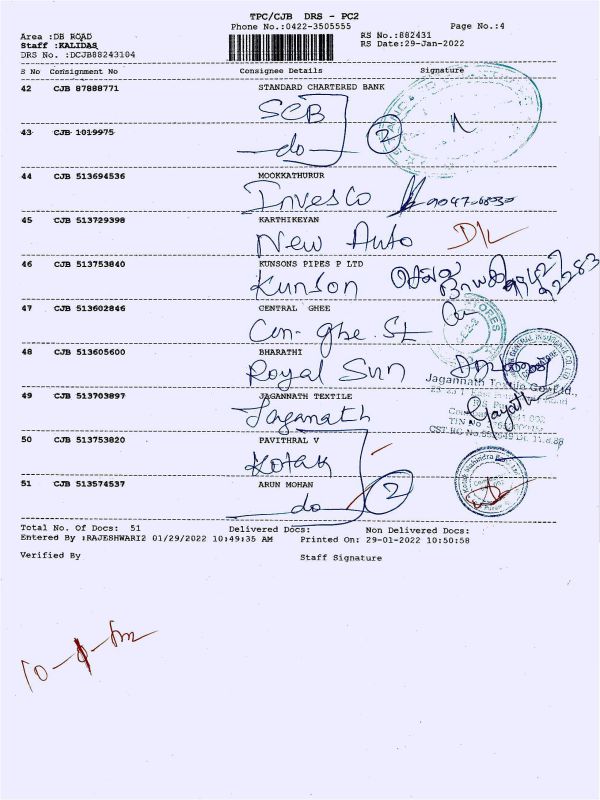 TPC/CJB DRS - PC2
Phone No.:0422-3505555
Page No.:4
Area :DB ROAD
RS No.:882431
Staff :KALIDAS
RS Date:29-Jan-2022
DRS No. :DCJB88243104
S No Consignment No Consignee Details Signature
42 CJB 87888771 STANDARD CHARTERED BANK
SCB
43 CJB 1019975
do
2
44 CJB 513694536 MOOKKATHURUR
Invesco
45 CJB 513729398 KARTHIKEYAN
New Auto D/L
46 CJB 513753840 KUNSONS PIPES P LTD
Kunson
47 CJB 513602846 CENTRAL GHEE
Cen- ghe. St
48 CJB 513605600 BHARATHI
Royal Sun
Jagannath Textile Co. Ltd.,
49 CJB 513703897 JAGANNATH TEXTILE
Jaganath
50 CJB 513753820 PAVITHRAL V
Kotak
51 CJB 513574537 ARUN MOHAN
do 2
Total No. Of Docs: 51 Delivered Docs: Non Delivered Docs:
Entered By :RAJESHWARI2 01/29/2022 10:49:35 AM Printed On: 29-01-2022 10:50:58
Verified By Staff Signature